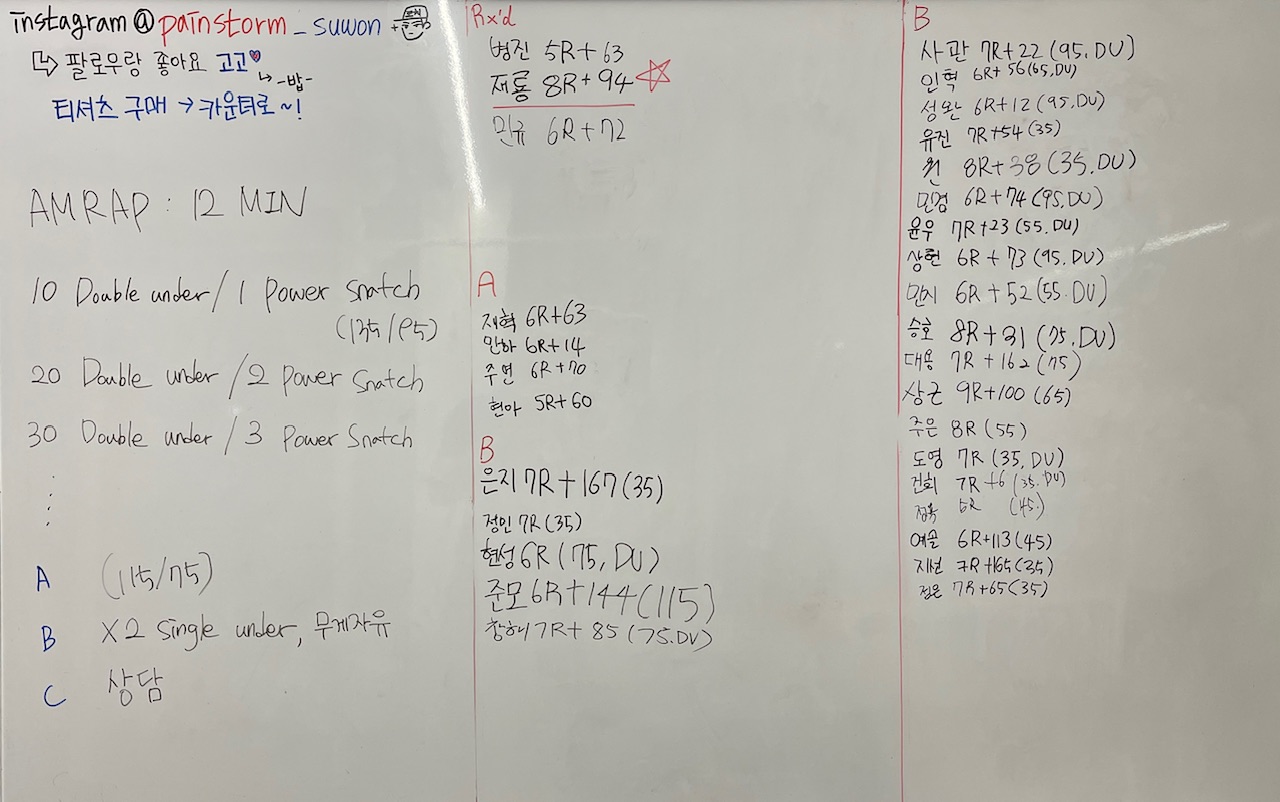 instagram @painstorm_suwon
팔로우랑 좋아요 고고
-밥-
티셔츠 구매 → 카운터로~!
AMRAP : 12 MIN
10 Double under / 1 power snatch
(135/95)
20 Double under / 2 power snatch
30 Double under / 3 power snatch
A (115/75)
B X2 single under, 무게자유
C 상담
Rx'd
병진 5R+63
재룡 8R+94
민규 6R+72
A
재혁 6R+63
민하 6R+14
주연 6R+70
현아 5R+60
B
은지 7R+167(35)
정인 7R(35)
현성 6R(75, DU)
준모 6R+144(115)
창해 7R+85(75.DU)
B
사관 7R+22(95,DU)
인혁 6R+56(65,DU)
성완 6R+12(95,DU)
유진 7R+54(35)
원 8R+38(35.DU)
민겸 6R+74(95.DU)
윤우 7R+23(55.DU)
상헌 6R+73(95.DU)
민지 6R+52(55.DU)
승호 8R+31(75.DU)
대용 7R+162(75)
상근 9R+100(65)
주은 8R(55)
도영 7R(35,DU)
건희 7R+6(35.DU)
(45.)
예슬 6R+113(45)
지선 7R+165(35)
정은 7R+65(35)